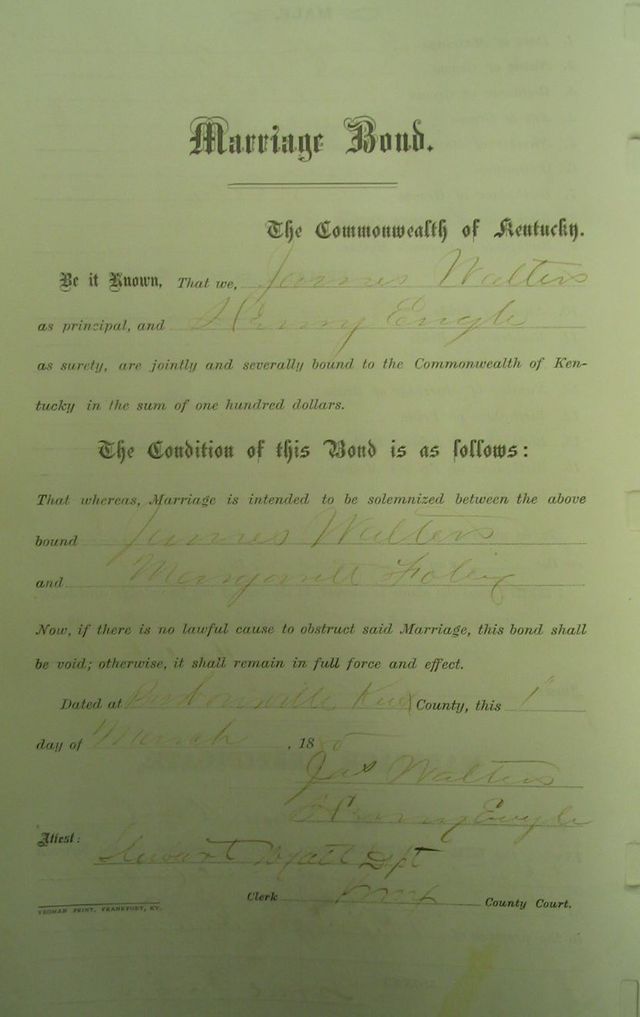 Marriage Bond.
The Commonwealth of Kentucky.
Be it Known, That we, James Walters
as principal, and Henry Engle
as surety, are jointly and severally bound to the Commonwealth of Ken-
tucky in the sum of one hundred dollars.
The Condition of this Bond is as follows:
That whereas, Marriage is intended to be solemnized between the above
bound James Walters
and
Now, if there is no lawful cause to obstruct said Marriage, this bond shall
be void; otherwise, it shall remain in full force and effect.
Dated at Barbourville Knox County, this 1"
day of March, 18
Jas Walters
Henry Engle
Attest:
Stewart Wyatt Dpt
Clerk Knox County Court.
YEOMAN PRINT, FRANKFORT, KY.